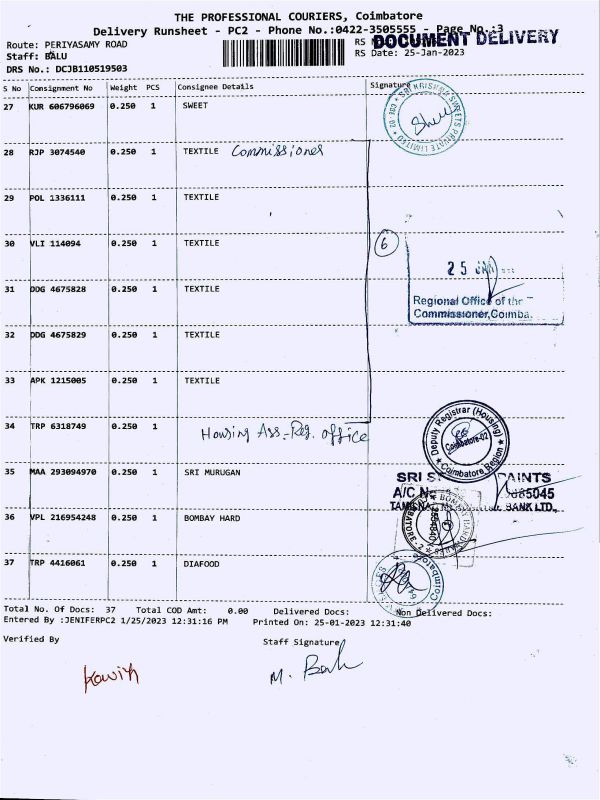 THE PROFESSIONAL COURIERS, Coimbatore
Delivery Runsheet - PC2 - Phone No.:0422-3505555 - Page No.:3
DOCUMENT DELIVERY
Route: PERIYASAMY ROAD
Staff: BALU
RS Date: 25-Jan-2023
DRS No.: DCJB110519503
S No Consignment No Weight PCS Consignee Details Signature
27 KUR 606796069 0.250 1 SWEET
28 RJP 3074540 0.250 1 TEXTILE Commissioner
29 POL 1336111 0.250 1 TEXTILE
30 VLI 114094 0.250 1 TEXTILE
6
25 JAN
31 DDG 4675828 0.250 1 TEXTILE
Regional Office of the
Commissioner, Coimba
32 DDG 4675829 0.250 1 TEXTILE
33 APK 1215005 0.250 1 TEXTILE
34 TRP 6318749 0.250 1 Housing Ass. Reg. office
Deputy Registrar (Housing)
Coimbatore-02
Coimbatore Region
35 MAA 293094970 0.250 1 SRI MURUGAN
SRI
AINTS
A/C No
BANK LTD.,
36 VPL 216954248 0.250 1 BOMBAY HARD
37 TRP 4416061 0.250 1 DIAFOOD
Coimbatore
Total No. Of Docs: 37 Total COD Amt: 0.00 Delivered Docs: Non Delivered Docs:
Entered By :JENIFERPC2 1/25/2023 12:31:16 PM Printed On: 25-01-2023 12:31:40
Verified By Staff Signature